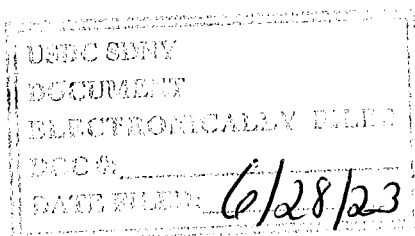 USDC SDNY
DOCUMENT
ELECTRONICALLY FILED
DOC #:
DATE FILED: 6/28/23